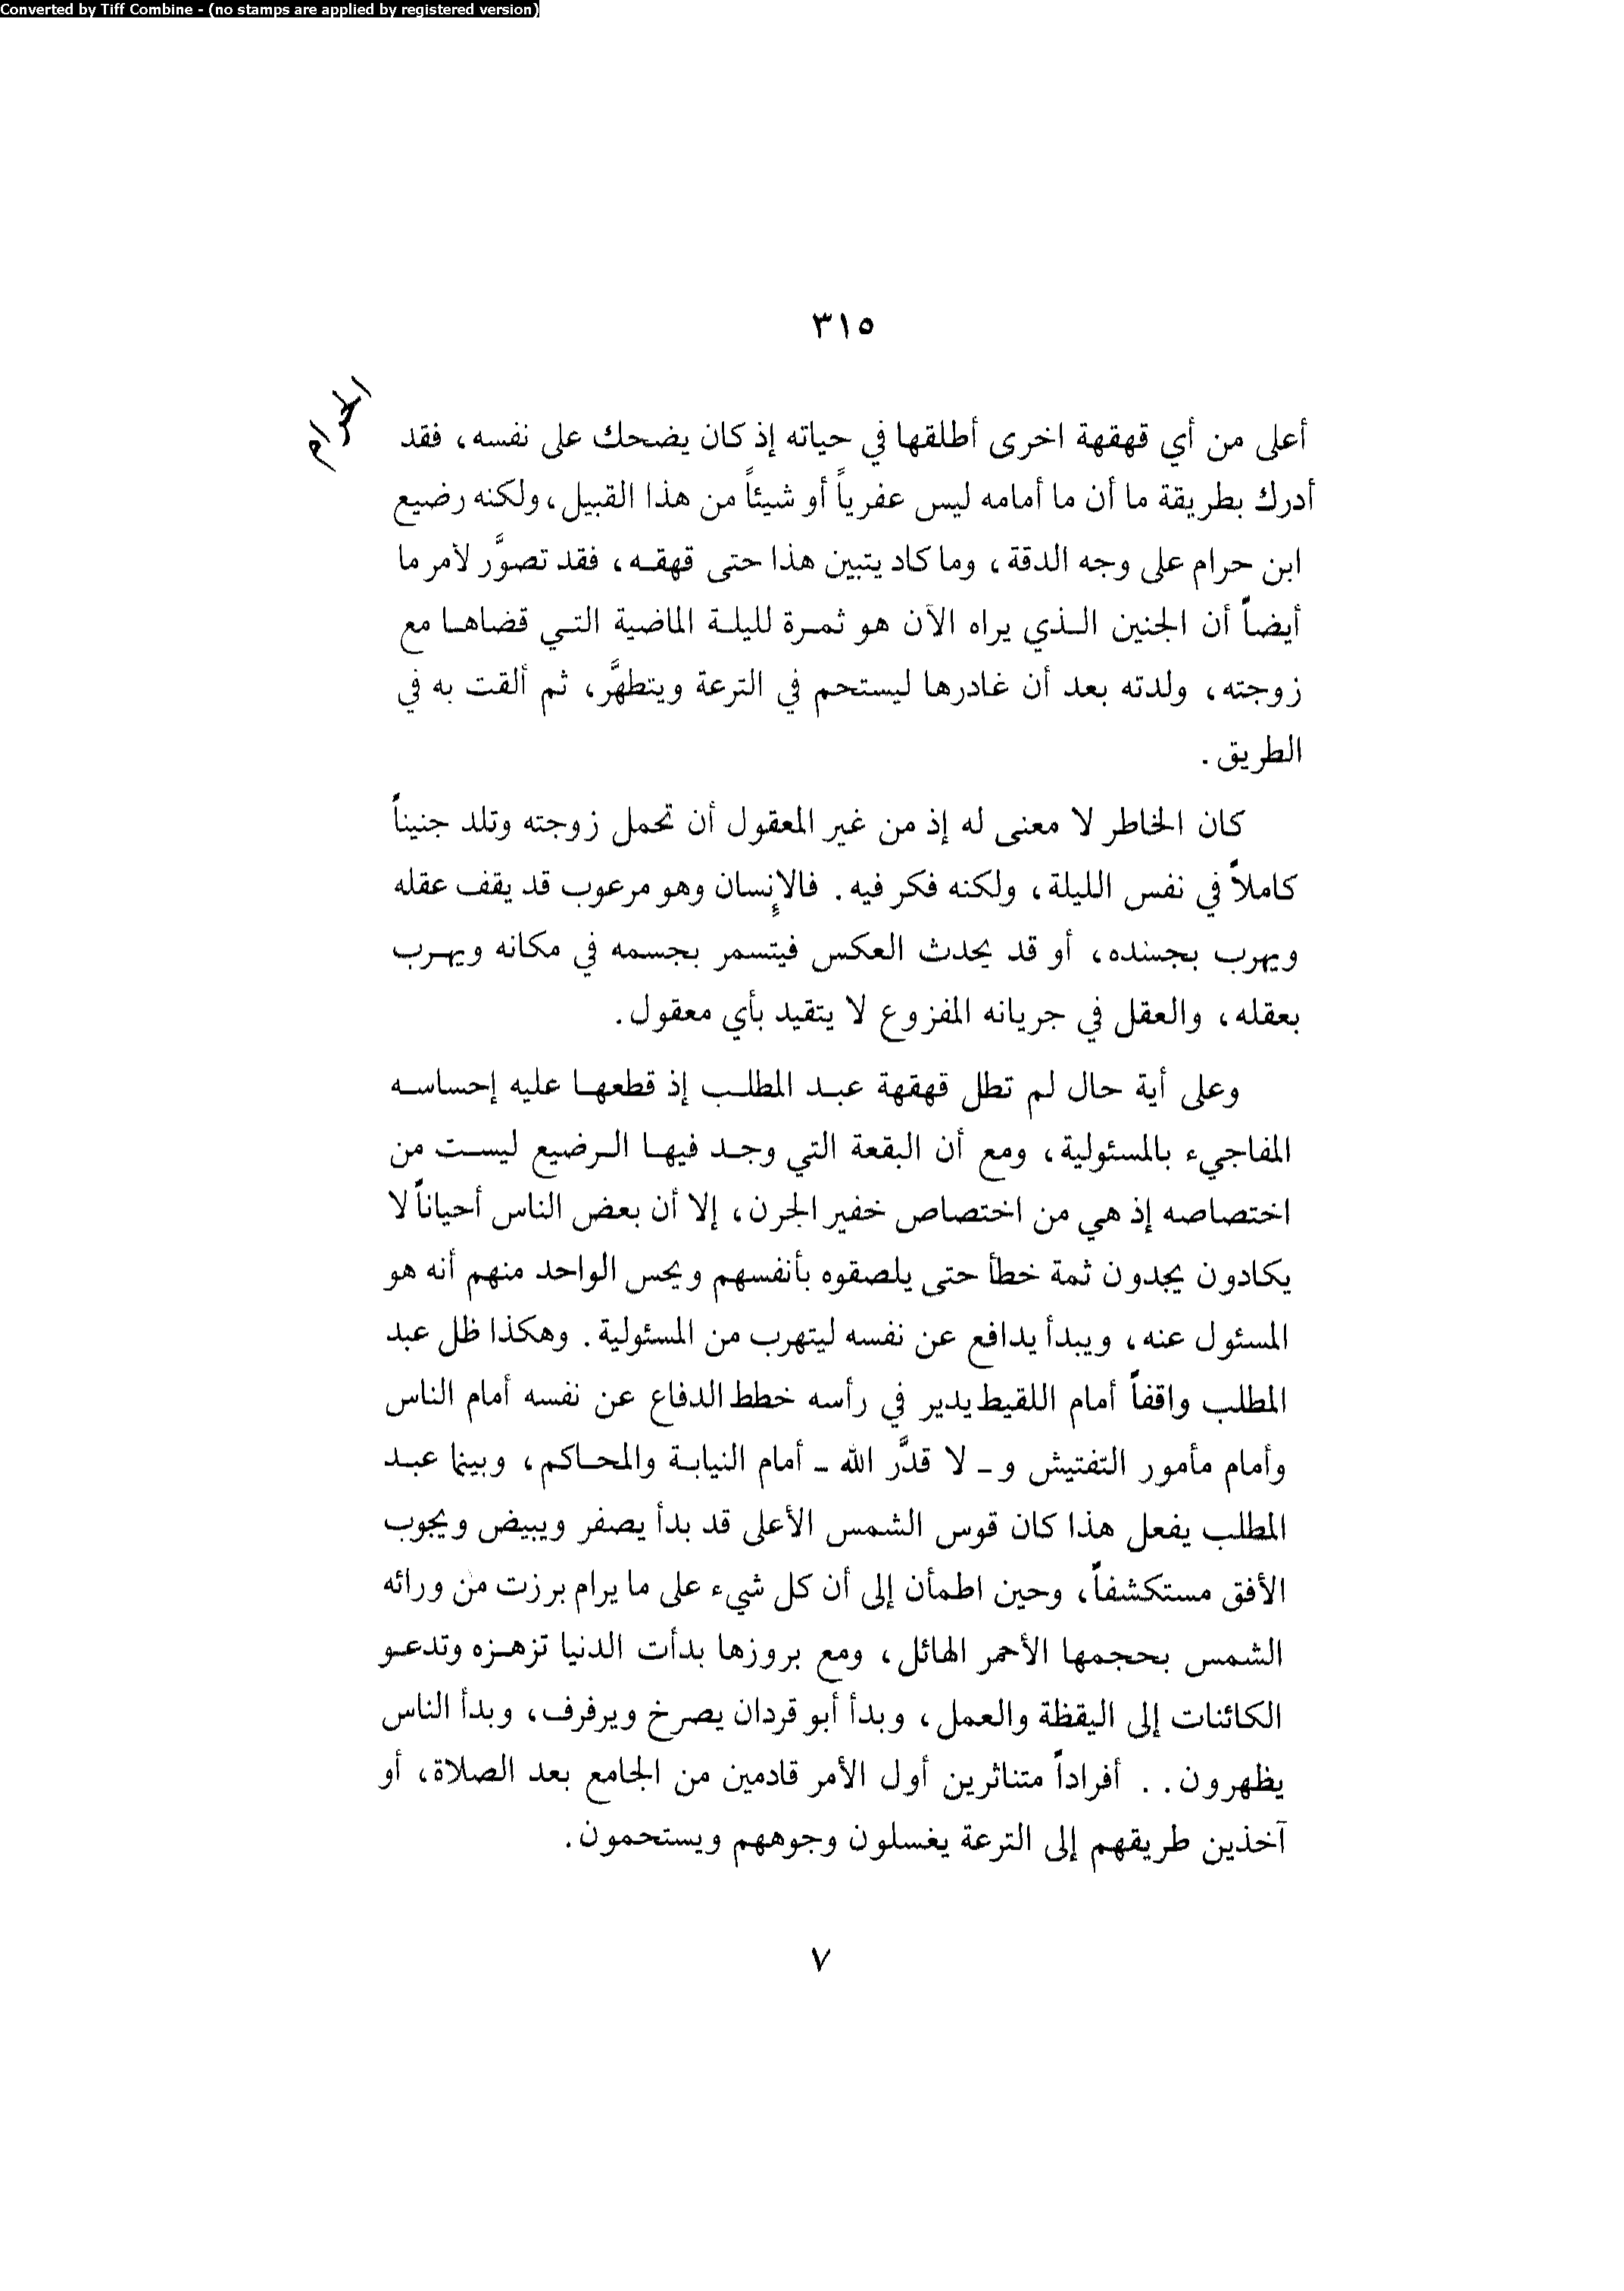 Converted by Tiff Combine - (no stamps are applied by registered version)
٣١٥
الحرام
أعلى من أي قهقهة اخرى أطلقها في حياته إذ كان يضحك على نفسه، فقد
أدرك بطريقة ما أن ما أمامه ليس عفرياً أو شيئاً من هذا القبيل، ولكنه رضيع
ابن حرام على وجه الدقة، وما كاد يتبين هذا حتى قهقـه، فقد تصوَّر لأمر ما
أيضاً أن الجنين الـذي يراه الآن هو ثمـرة لليلـة الماضية التـي قضاهـا مع
زوجته، ولدته بعد أن غادرها ليستحم في الترعة ويتطهَّر، ثم ألقت به في
الطريق.
كان الخاطر لا معنى له إذ من غير المعقول أن تحمل زوجته وتلد جنيناً
كاملاً في نفس الليلة، ولكنه فكر فيه. فالإنسان وهو مرعوب قد يقف عقله
ويهرب بجسده، أو قد يحدث العكس فيتسمر بجسمه في مكانه ويهـرب
بعقله، والعقل في جريانه المفزوع لا يتقيد بأي معقول.
وعلى أية حال لم تطل قهقهة عبـد المطلـب إذ قطعهـا عليه إحساسـه
المفاجيء بالمسئولية، ومع أن البقعة التي وجـد فيهـا الـرضيع ليسـت من
اختصاصه إذ هي من اختصاص خفير الجرن، إلا أن بعض الناس أحياناً لا
يكادون يجدون ثمة خطأ حتى يلصقوه بأنفسهم ويحس الواحد منهم أنه هو
المسئول عنه، ويبدأ يدافع عن نفسه ليتهرب من المسئولية. وهكذا ظل عبد
المطلب واقفاً أمام اللقيط يدير في رأسه خطط الدفاع عن نفسه أمام الناس
وأمام مأمور التفتيش و ـ لا قدَّر الله ـ أمام النيابـة والمحـاكم، وبينما عبـد
المطلب يفعل هذا كان قوس الشمس الأعلى قد بدأ يصفر ويبيض ويجوب
الأفق مستكشفاً، وحين اطمأن إلى أن كل شيء على ما يرام برزت من ورائه
الشمس بحجمها الأحمر الهائل، ومع بروزها بدأت الدنيا تزهـزه وتدعـو
الكائنات إلى اليقظة والعمل، وبدأ أبو قردان يصرخ ويرفرف، وبدأ الناس
يظهرون. . أفراداً متناثرين أول الأمر قادمين من الجامع بعد الصلاة، أو
آخذين طريقهم إلى الترعة يغسلون وجوههم ويستحمون.
٧